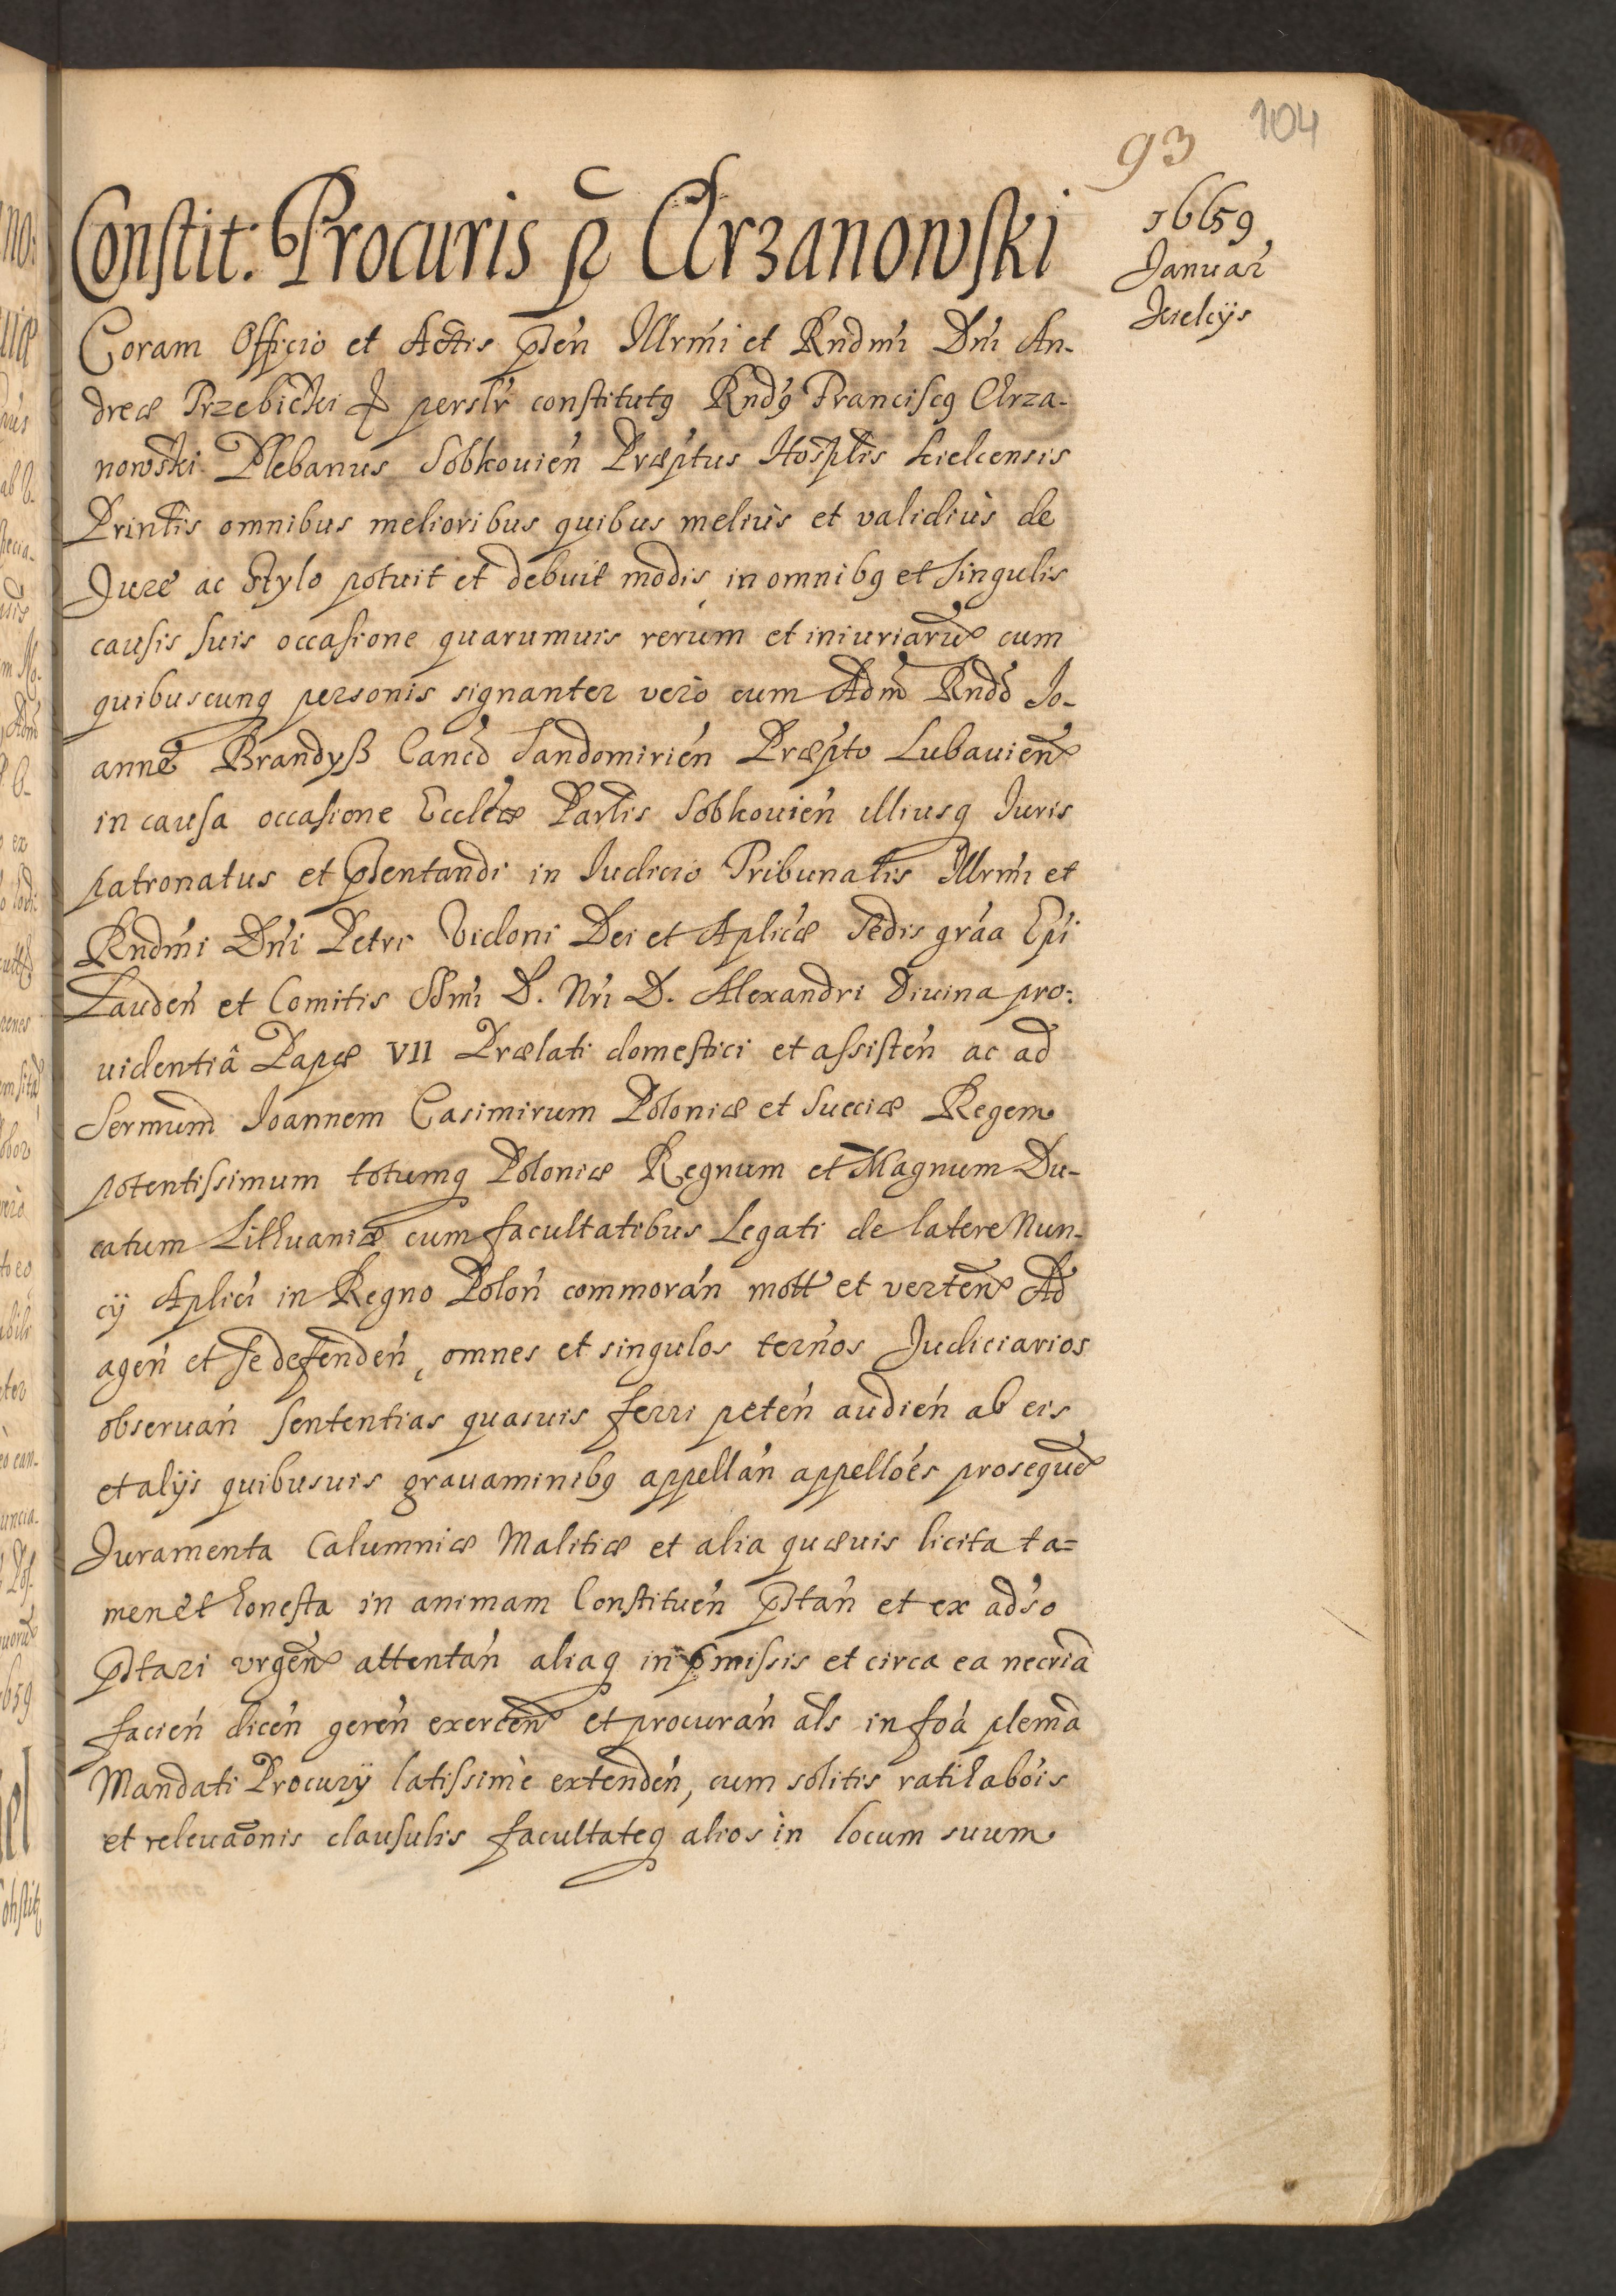 104
93
1659
Januar
Kielcijs
Constit: Procuris p Chrzanowski
Coram Officio et Actis pñten Illrmi et Rndmi Dni An-
dreæ Trzebicki perslr constitutq Rndq Franciscq Chrza-
nowski Plebanus Sobkouien Præptus Hosplis Kielcensis
Printis omnibus melioribus quibus meliùs et validiùs de
Jure ac Stylo potuit et debuit modis, in omnibq et singulis
causis suis occasione quarumuis rerum et iniuriarũ cum
quibuscunq personis signanter verò cum Adm Rndo Jo-
anne Brandyß Canco Sandomirien Præpto Lubauien
in causa occasione Eccleæ Parlis Sobkouien illiusq Juris
patronatus et pñtentandi in Judicio Tribunalis Illrmi et
Rndmi Dni Petri Vidoni Dei et Aplicæ Sedis gráa Epi
Lauden et Comitis SSmi D. Nri D. Alexandri Diuina pro:
uidentiâ Papæ VII Prælati domestici et assisten ac ad
Sermum Joannem Casimirum Poloniæ et Sueciæ Regem
potentissimum totumq Poloniæ Regnum et Magnum Du-
catum Lithuaniæ cum facultatibus Legati de latere Nun-
cij Aplici in Regno Polon commorán mott et verten Ad
agen et se defenden, omnes et singulos ternos Judiciarios
obseruán sententias quasuis ferri peten audien ab eis
et alijs quibusuis grauaminibq appellán appelloés prosequẽ
Juramenta Calumniæ Malitiæ et alia quæuis licita ta=
men et honesta in animam Constituen pstán et ex adso
pstari vrgen attentán aliaq in pmissis et circa ea necria
facien dicen geren exercen et procurán als in foá plema
Mandati Procurij latissimè extenden, cum solitis ratihabois
et releuaõnis clausulis facultateq alios in locum suum